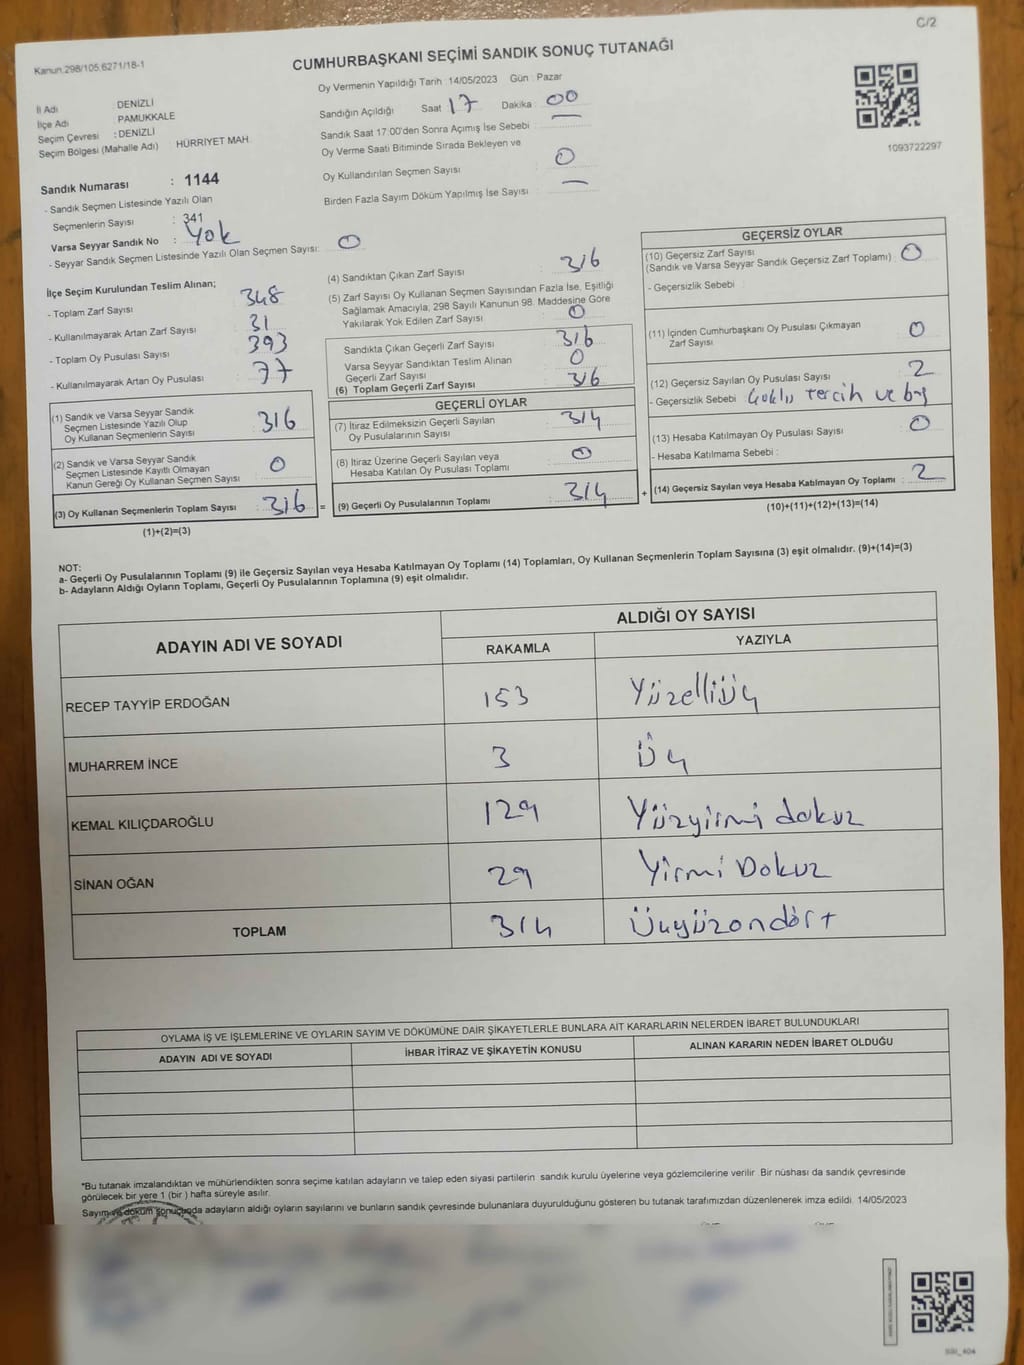 C/2
Kanun.298/105,6271/18-1
CUMHURBAŞKANI SEÇİMİ SANDIK SONUÇ TUTANAĞI
İl Adı : DENİZLİ
İlçe Adı : PAMUKKALE
Seçim Çevresi : DENİZLİ
Seçim Bölgesi (Mahalle Adı) : HÜRRİYET MAH.
Oy Vermenin Yapıldığı Tarih : 14/05/2023 Gün : Pazar
Sandığın Açıldığı Saat 17 Dakika : 00
Sandık Saat 17:00'den Sonra Açımış İse Sebebi : —
Oy Verme Saati Bitiminde Sırada Bekleyen ve
Oy Kullandırılan Seçmen Sayısı : 0
Birden Fazla Sayım Döküm Yapılmış İse Sayısı : —
1093722297
Sandık Numarası : 1144
- Sandık Seçmen Listesinde Yazılı Olan
Seçmenlerin Sayısı : 341
Varsa Seyyar Sandık No : Yok
- Seyyar Sandık Seçmen Listesinde Yazılı Olan Seçmen Sayısı: 0
İlçe Seçim Kurulundan Teslim Alınan;
- Toplam Zarf Sayısı : 348
- Kullanılmayarak Artan Zarf Sayısı : 31
- Toplam Oy Pusulası Sayısı : 393
- Kullanılmayarak Artan Oy Pusulası : 77
(1) Sandık ve Varsa Seyyar Sandık
Seçmen Listesinde Yazılı Olup
Oy Kullanan Seçmenlerin Sayısı : 316
(2) Sandık ve Varsa Seyyar Sandık
Seçmen Listesinde Kayıtlı Olmayan
Kanun Gereği Oy Kullanan Seçmen Sayısı : 0
(3) Oy Kullanan Seçmenlerin Toplam Sayısı : 316
(1)+(2)=(3)
(4) Sandıktan Çıkan Zarf Sayısı : 316
(5) Zarf Sayısı Oy Kullanan Seçmen Sayısından Fazla İse, Eşitliği
Sağlamak Amacıyla, 298 Sayılı Kanunun 98. Maddesine Göre
Yakılarak Yok Edilen Zarf Sayısı : 0
Sandıkta Çıkan Geçerli Zarf Sayısı : 316
Varsa Seyyar Sandıktan Teslim Alınan
Geçerli Zarf Sayısı : 0
(6) Toplam Geçerli Zarf Sayısı : 316
GEÇERLİ OYLAR
(7) İtiraz Edilmeksizin Geçerli Sayılan
Oy Pusulalarının Sayısı : 314
(8) İtiraz Üzerine Geçerli Sayılan veya
Hesaba Katılan Oy Pusulası Toplamı : 0
= (9) Geçerli Oy Pusulalarının Toplamı : 314
GEÇERSİZ OYLAR
(10) Geçersiz Zarf Sayısı
(Sandık ve Varsa Seyyar Sandık Geçersiz Zarf Toplamı) : 0
- Geçersizlik Sebebi :
(11) İçinden Cumhurbaşkanı Oy Pusulası Çıkmayan
Zarf Sayısı : 0
(12) Geçersiz Sayılan Oy Pusulası Sayısı : 2
- Geçersizlik Sebebi : tercih ve
(13) Hesaba Katılmayan Oy Pusulası Sayısı : 0
- Hesaba Katılmama Sebebi :
+ (14) Geçersiz Sayılan veya Hesaba Katılmayan Oy Toplamı : 2
(10)+(11)+(12)+(13)=(14)
NOT:
a- Geçerli Oy Pusulalarının Toplamı (9) ile Geçersiz Sayılan veya Hesaba Katılmayan Oy Toplamı (14) Toplamları, Oy Kullanan Seçmenlerin Toplam Sayısına (3) eşit olmalıdır. (9)+(14)=(3)
b- Adayların Aldığı Oyların Toplamı, Geçerli Oy Pusulalarının Toplamına (9) eşit olmalıdır.
ADAYIN ADI VE SOYADI ALDIĞI OY SAYISI
RAKAMLA YAZIYLA
RECEP TAYYİP ERDOĞAN 153 Yüzelliüç
MUHARREM İNCE 3 Üç
KEMAL KILIÇDAROĞLU 129 Yüzyirmi dokuz
SİNAN OĞAN 29 Yirmi Dokuz
TOPLAM 314 Üçyüzondört
OYLAMA İŞ VE İŞLEMLERİNE VE OYLARIN SAYIM VE DÖKÜMÜNE DAİR ŞİKAYETLERLE BUNLARA AİT KARARLARIN NELERDEN İBARET BULUNDUKLARI
ADAYIN ADI VE SOYADI İHBAR İTİRAZ VE ŞİKAYETİN KONUSU ALINAN KARARIN NEDEN İBARET OLDUĞU
*Bu tutanak imzalandıktan ve mühürlendikten sonra seçime katılan adayların ve talep eden siyasi partilerin sandık kurulu üyelerine veya gözlemcilerine verilir. Bir nüshası da sandık çevresinde
görülecek bir yere 1 (bir ) hafta süreyle asılır.
Sayım ve döküm sonucunda adayların aldığı oyların sayılarını ve bunların sandık çevresinde bulunanlara duyurulduğunu gösteren bu tutanak tarafımızdan düzenlenerek imza edildi. 14/05/2023